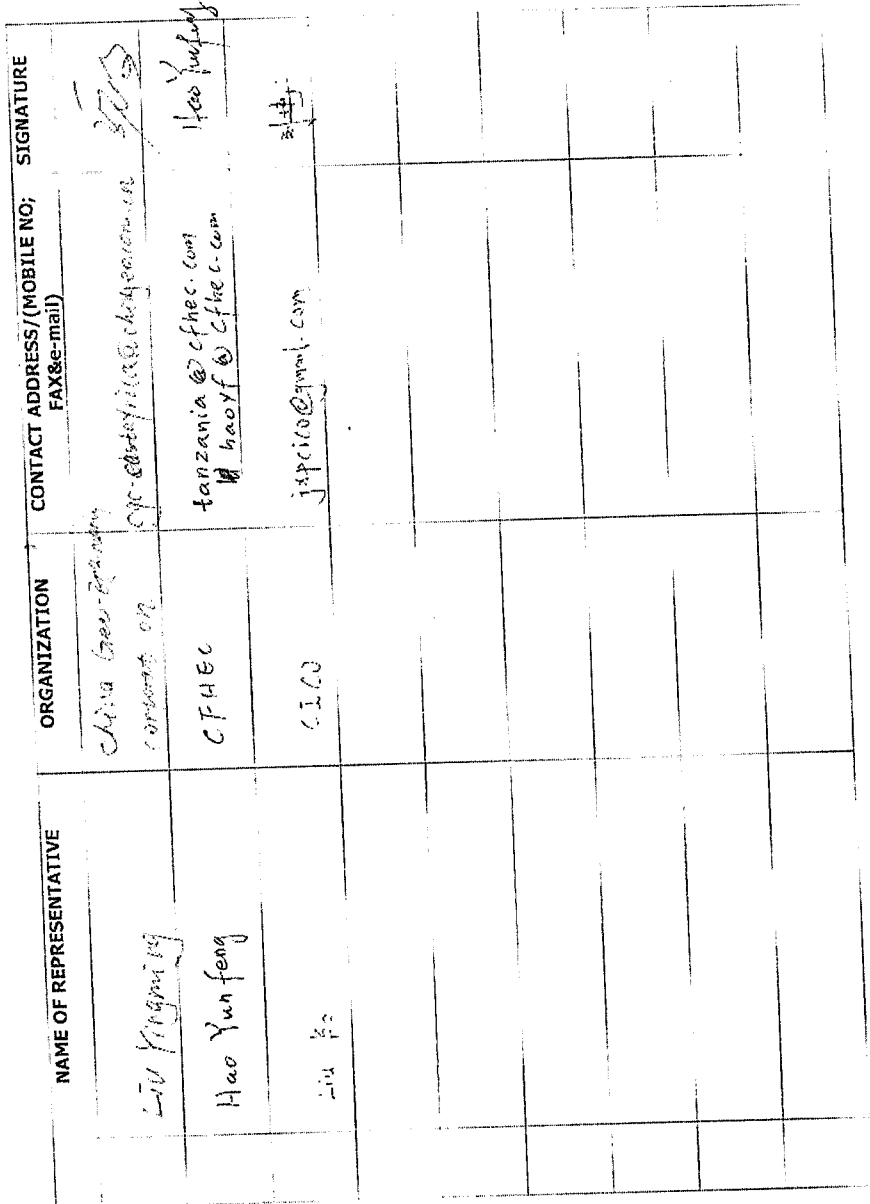 NAME OF REPRESENTATIVE
ORGANIZATION
CONTACT ADDRESS/(MOBILE NO;
FAX&e-mail)
SIGNATURE
Liu Yingming
China Geo-
Hao Yunfeng
CFHEC
tanzania@cfhec.com
haoyf@cfhec.com
Hao Yunfeng
Liu
CICO
@gmail.com